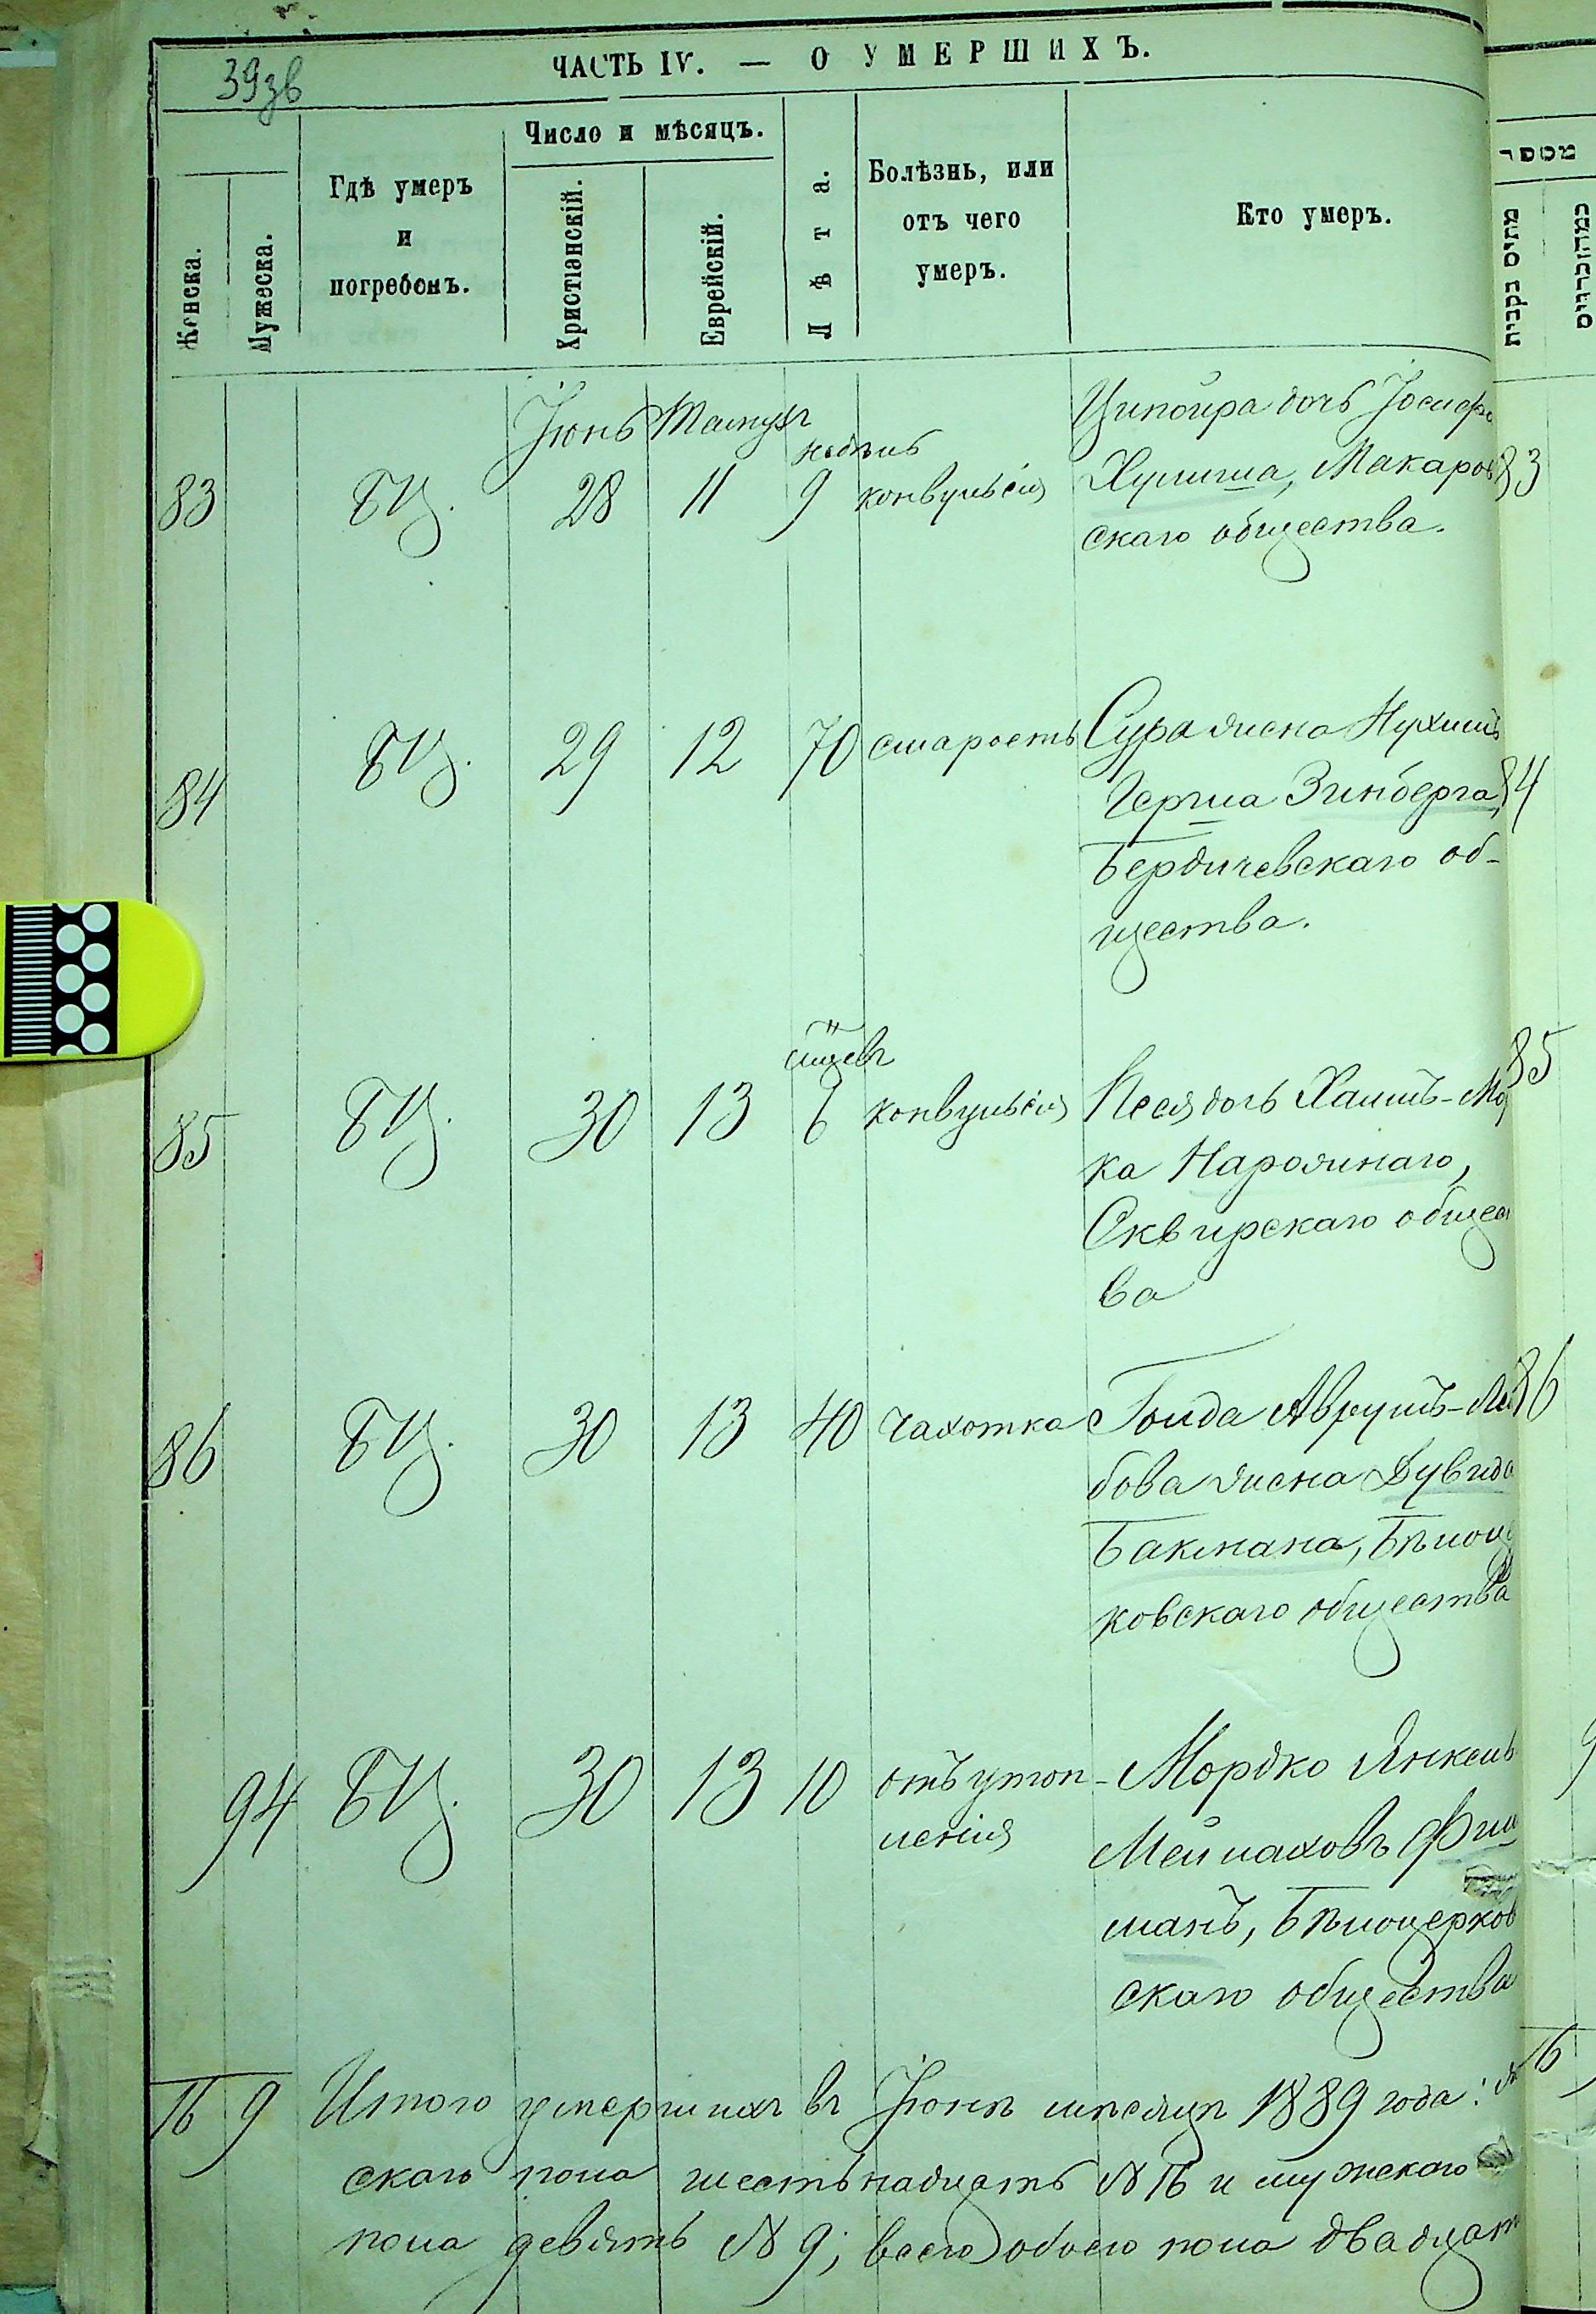 39зв
ЧАСТЬ IV. — О УМЕРШИХЪ.
Женска.
Мужеска.
Гдѣ умеръ
и
погребенъ.
Число и мѣсяцъ.
Христіанскій.
Еврейскій.
Лѣта.
Болѣзнь, или
отъ чего
умеръ.
Кто умеръ.
מספר
מתים נקבות
Іюнь Тамузъ
недѣль
83 БЦ. 28 11 9 конвульсія
Ципойра дочь Іосифа
Хулиша, Макаров
скаго общества.
83
84 БЦ. 29 12 70 старость
Сура жена Нухимъ
Герша Зинберга,
Бердичевскаго об-
щества.
84
85 БЦ. 30 13 6 конвульсія
Песя дочь Хаимъ-Мо
ка Нарожнаго,
Сквирскаго общес
ва
85
86 БЦ. 30 13 40 чахотка
Голда Аврумъ-Ле
бова жена Дувида
Бакмана, Бѣлоце
ковскаго общества
86
94 БЦ. 30 13 10 отъ утоп-
ленія
Мордко Янкель
Мейлаховъ Фиш
манъ, Бѣлоцерков
скаго общества
16 9 Итого умершихъ въ Іюнѣ мѣсяцѣ 1889 года:
скаго пола шестьнадцать № 16 и мужскаго
пола девять № 9; всего обоего пола двадцат
16